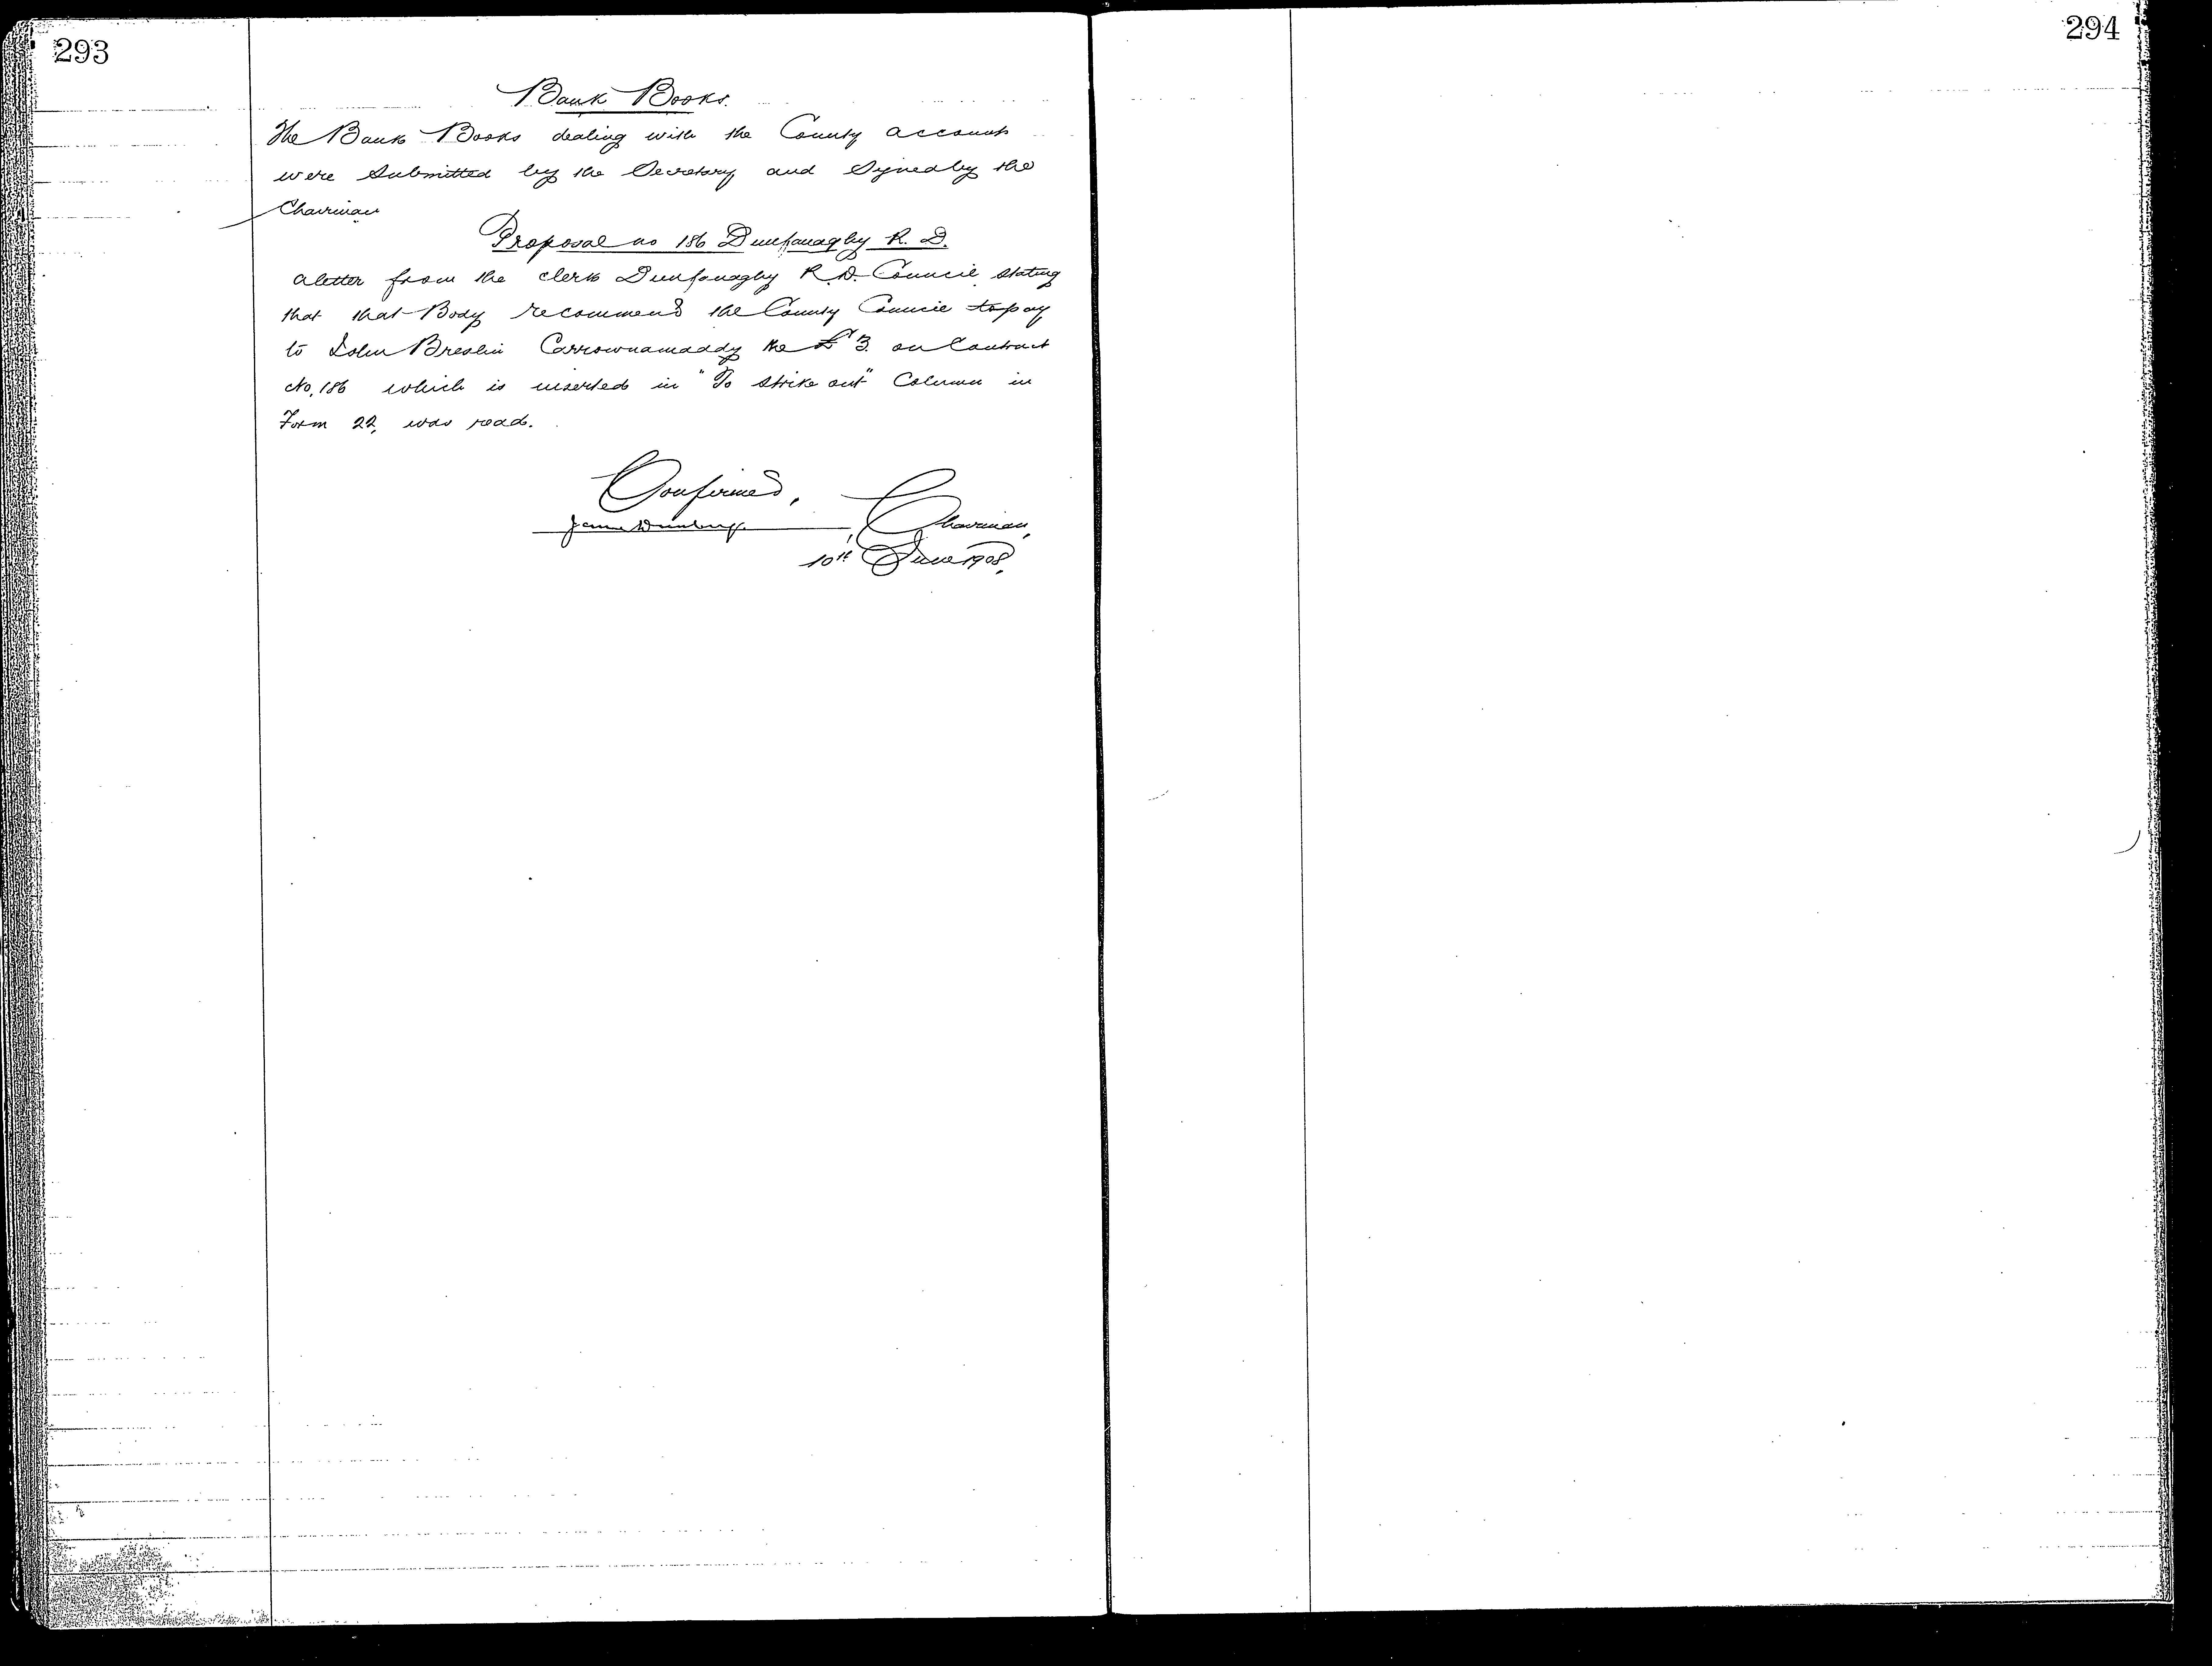 293
Bank Books.
The Bank Books dealing with the County accounts
were submitted by the Secretary and Signed by the
Chairman
Proposal no 186 Dunfanaghy R. D.
a letter from the clerk Dunfanaghy R.D. Council stating
that that Body recommend the County Council to pay
to John Breslin Carrownamaddy the £3. on Contract
No. 186 which is inserted in "To strike out" Column in
Form 22, was read.
Confirmed,
James , Chairman,
10th June 1908.
294